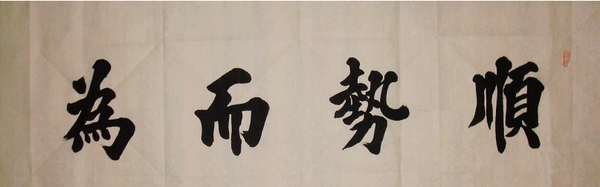 順勢而為